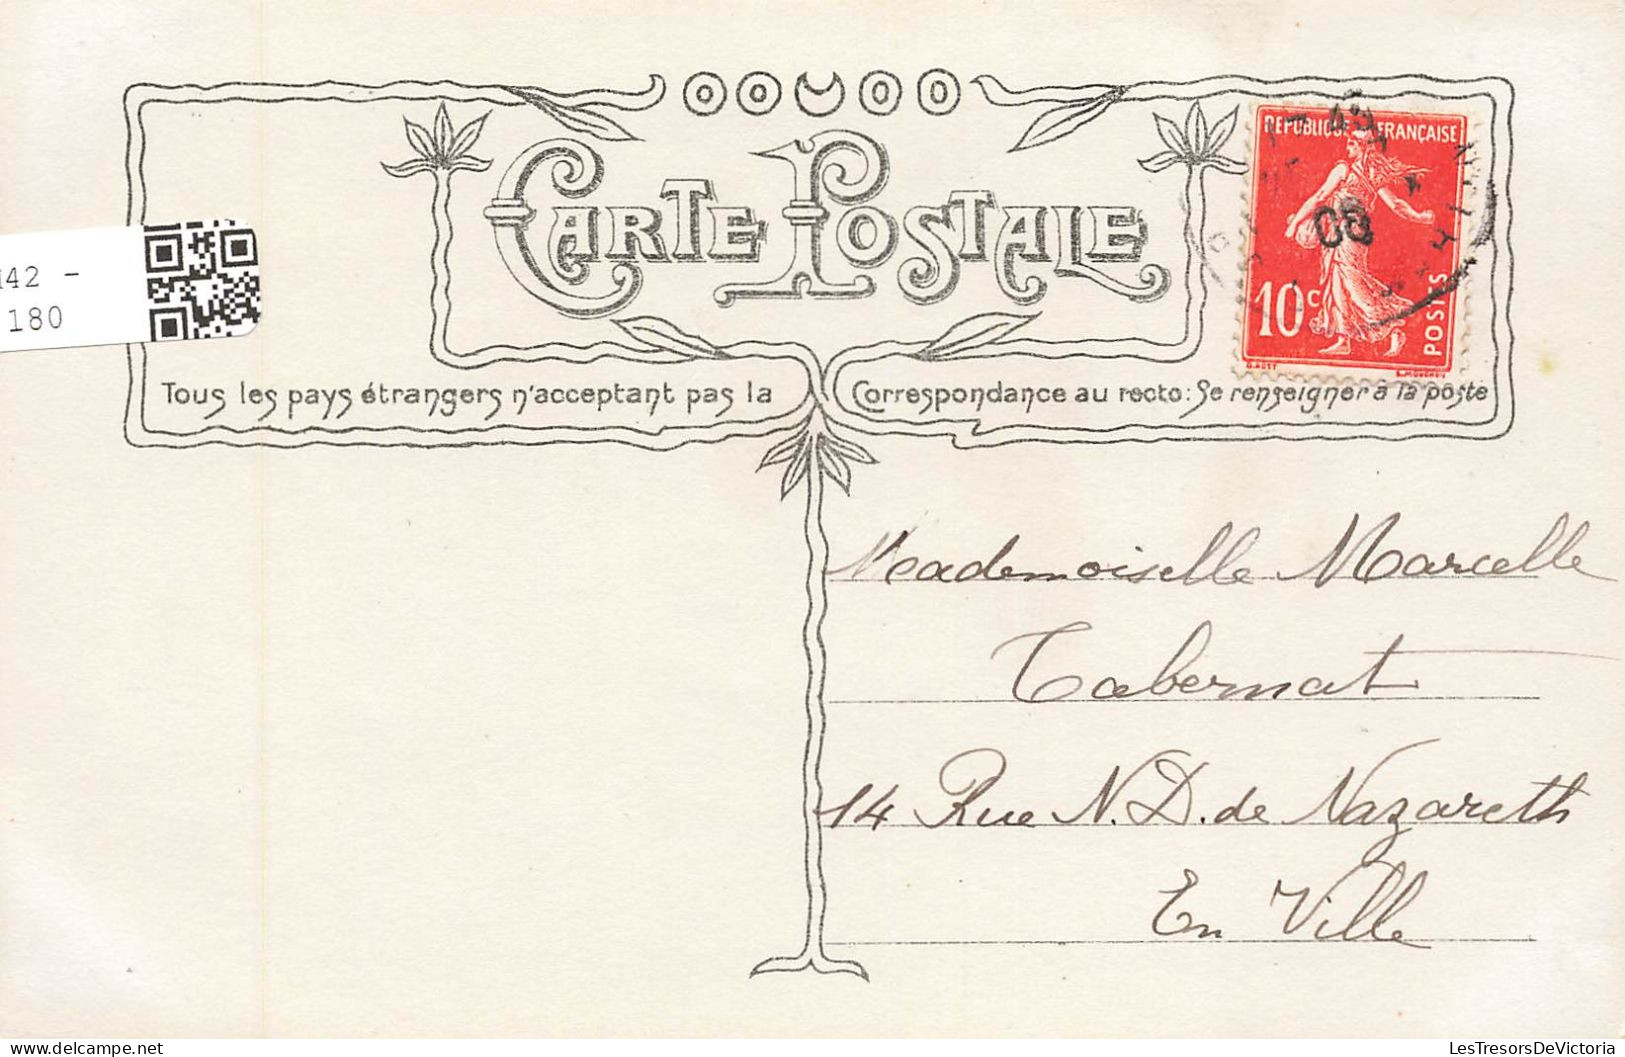 CARTE POSTALE
REPUBLIQUE FRANÇAISE
10c
POSTES
08
42 -
180
Tous les pays étrangers n'acceptant pas la Correspondance au recto: Se renseigner à la poste
Mademoiselle Marcelle
Tabernat
14 Rue N. D. de Nazareth
En Ville
LesTresorsDeVictoria